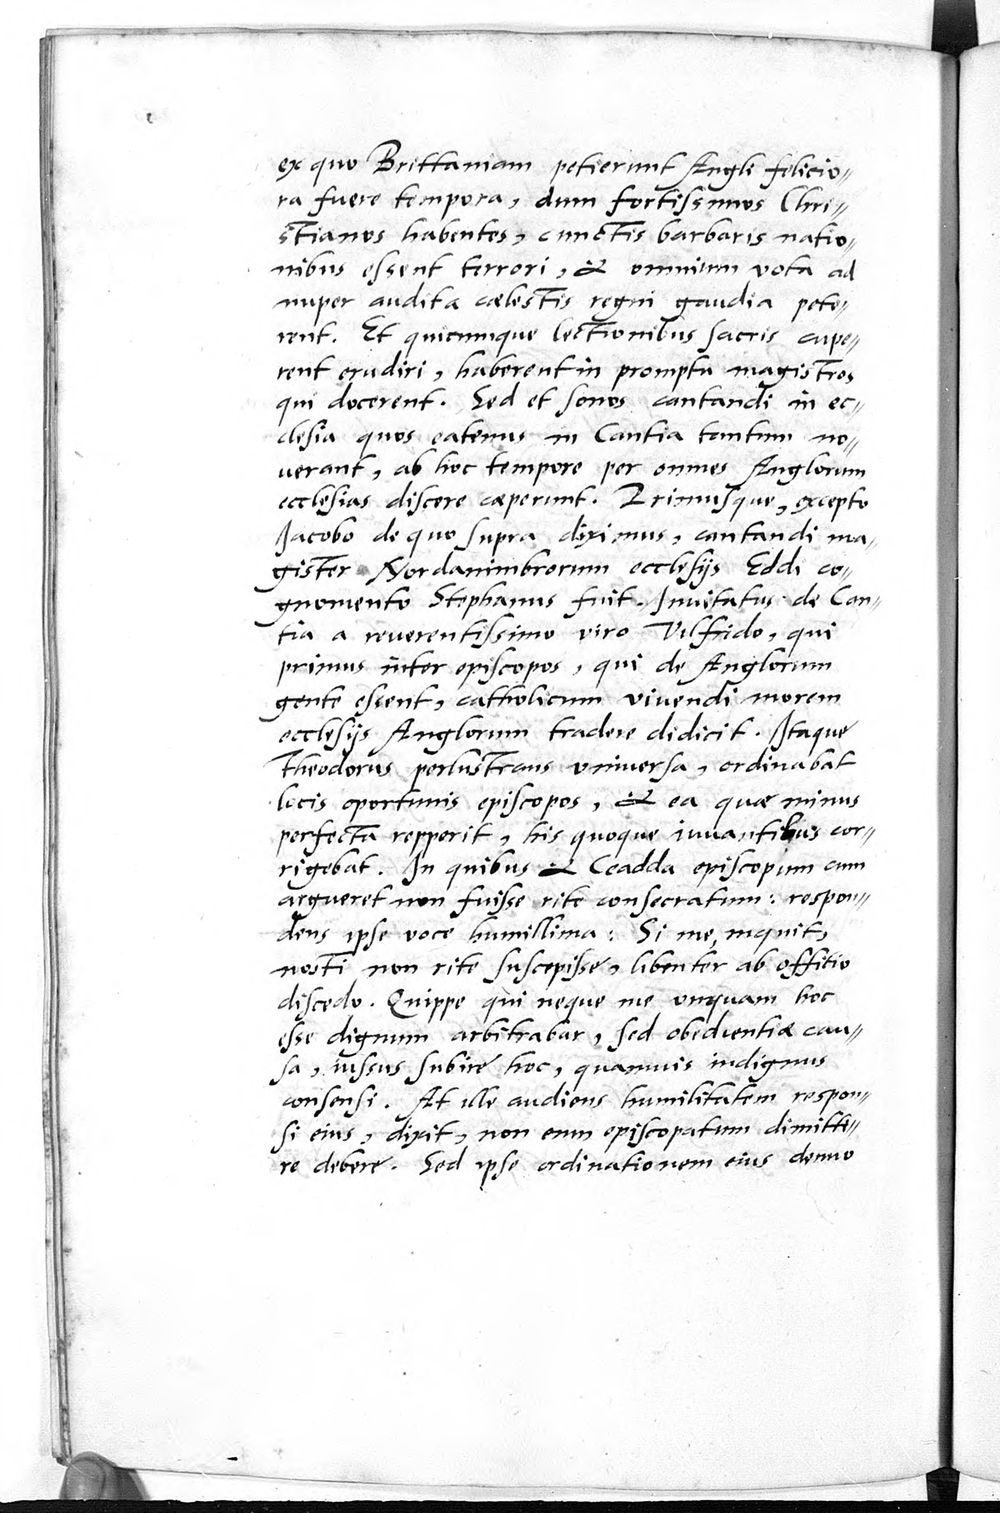 ex quo Brittaniam petierunt Angli felicio〃
ra fuere tempora, dum fortissimos Chri〃
stianos habentes, cunctis barbaris natio〃
nibus essent terrori, & omnium vota ad
nuper audita cælestis regni gaudia pete〃
rent. Et quicumque lectionibus sacris cupe〃
rent erudiri, haberent in promptu magistros
qui docerent. Sed et sonos cantandi in ec〃
clesia quos eatenus in Cantia tantum no〃
verant, ab hoc tempore per omnes Anglorum
ecclesias discere cæperunt. Primusque, excepto
Jacobo de quo supra diximus, cantandi ma〃
gister Nordanimbrorum ecclesijs Eddi co〃
gnomento Stephanus fuit. Invitatus de Can〃
tia a reverentissimo viro Vilfrido, qui
primus inter episcopos, qui de Anglorum
gente essent, catholicum vivendi morem
ecclesijs Anglorum tradere didicit. Itaque
Theodorus perlustrans vniversa, ordinabat
locis oportunis episcopos, & ea quæ minus
perfecta repperit, his quoque iuvantibus cor〃
rigebat. In quibus & Ceadda episcopum cum
argueret non fuisse rite consecratum: respon〃
dens ipse voce humillima: Si me, inquit,
nosti non rite suscepisse, libenter ab offitio
discedo. Quippe qui neque me vnquam hoc
esse dignum arbitrabar, sed obedientiæ cau〃
sa, iussus subire hoc, quamvis indignus
consensi. At ille audiens humilitatem respon〃
si eius, dixit, non eum episcopatum dimitte〃
re debere. Sed ipse ordinationem eius denuo